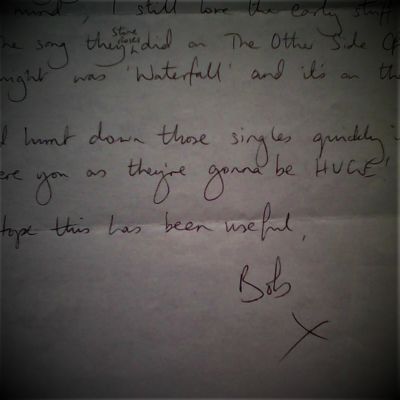 mind, I still love the early stuff
the song they stone roses did on The Other Side Of
night was 'Waterfall' and it's on the
hunt down those singles quickly
were you as they're gonna be HUGE!
Hope this has been useful,
Bob
X